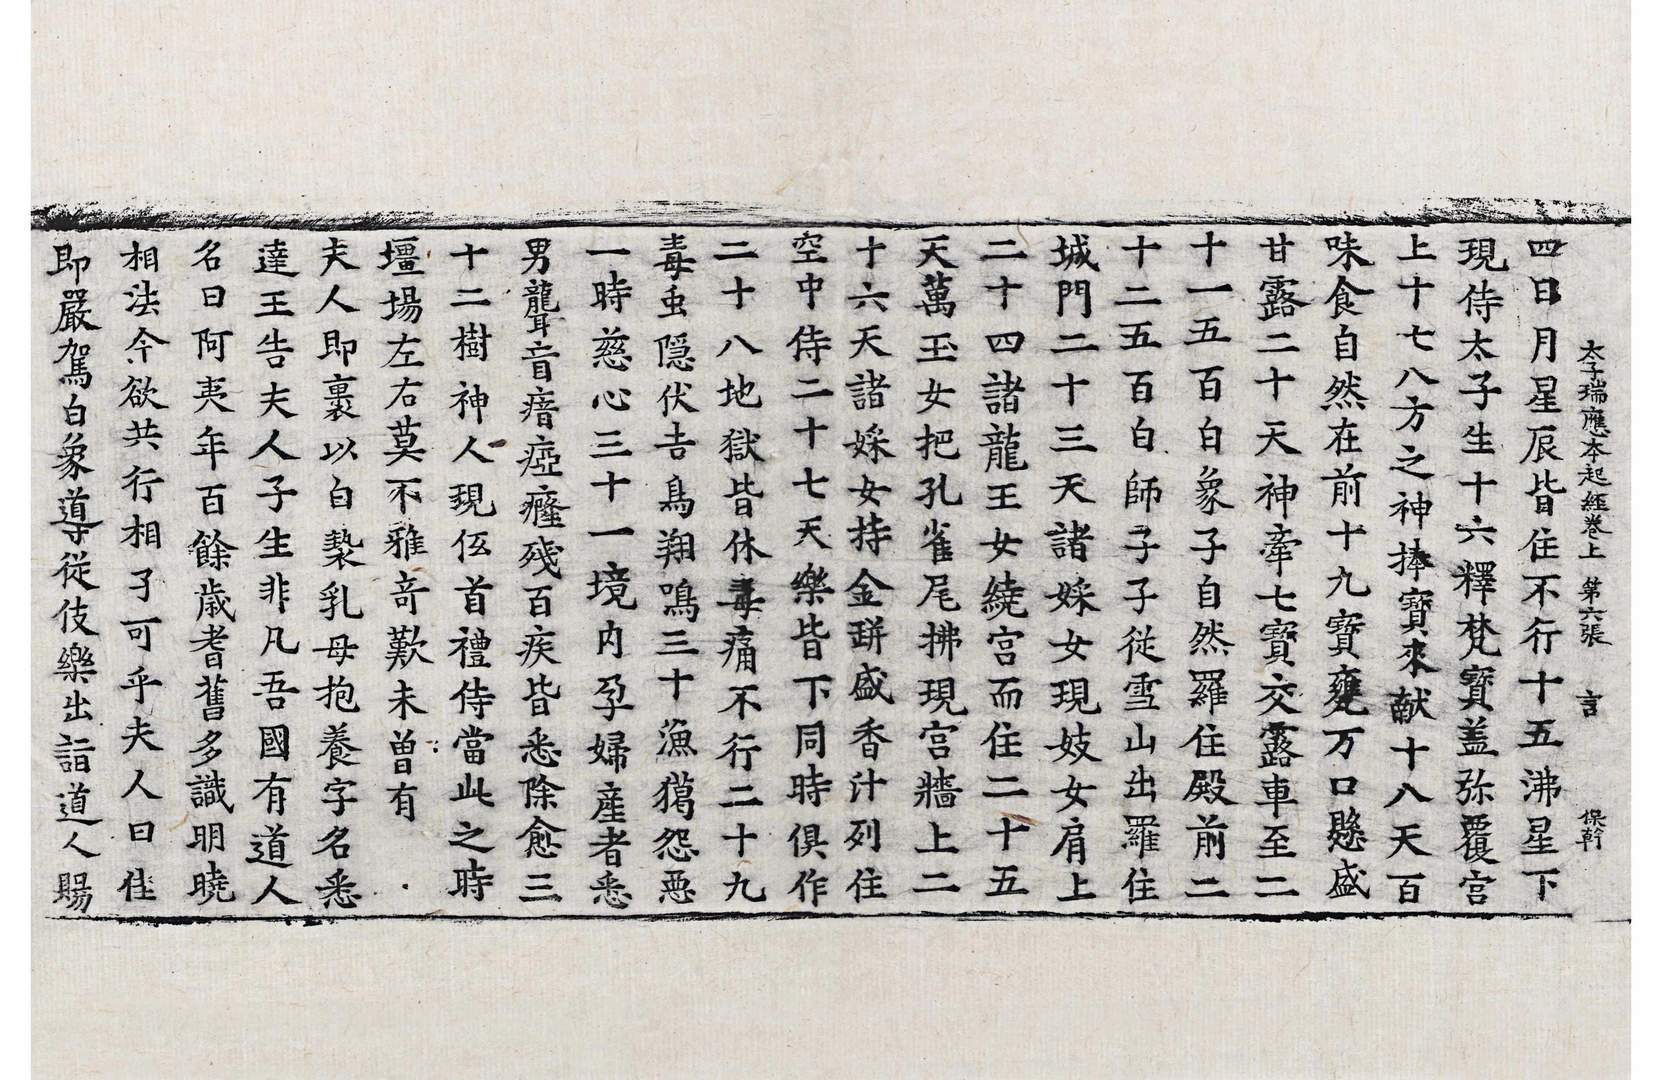 太子瑞應本起經卷上 第六張 言 保幹
四日月星辰皆住不行十五沸星下
現侍太子生十六釋梵寶盖弥覆宮
上十七八方之神捧寶來献十八天百
味食自然在前十九寶甕万口懸盛
甘露二十天神牽七寶交露車至二
十一五百白象子自然羅住殿前二
十二五百白師子子從雪山出羅住
城門二十三天諸婇女現妓女肩上
二十四諸龍王女繞宮而住二十五
天萬玉女把孔雀尾拂現宮牆上二
十六天諸婇女持金缾盛香汁列住
空中侍二十七天樂皆下同時俱作
二十八地獄皆休毒痛不行二十九
毒虫隠伏吉鳥翔鳴三十漁獵怨惡
一時慈心三十一境內孕婦産者悉
男聾盲瘖瘂癃殘百疾皆悉除愈三
十二樹神人現伍首禮侍當此之時
壃場左右莫不雅竒歎未曾有
夫人即裹以白㲲乳母抱養字名悉
達王告夫人子生非凡吾國有道人
名曰阿夷年百餘歳耆舊多識明曉
相法今欲共行相子可乎夫人曰佳
即嚴駕白象導從伎樂出詣道人賜